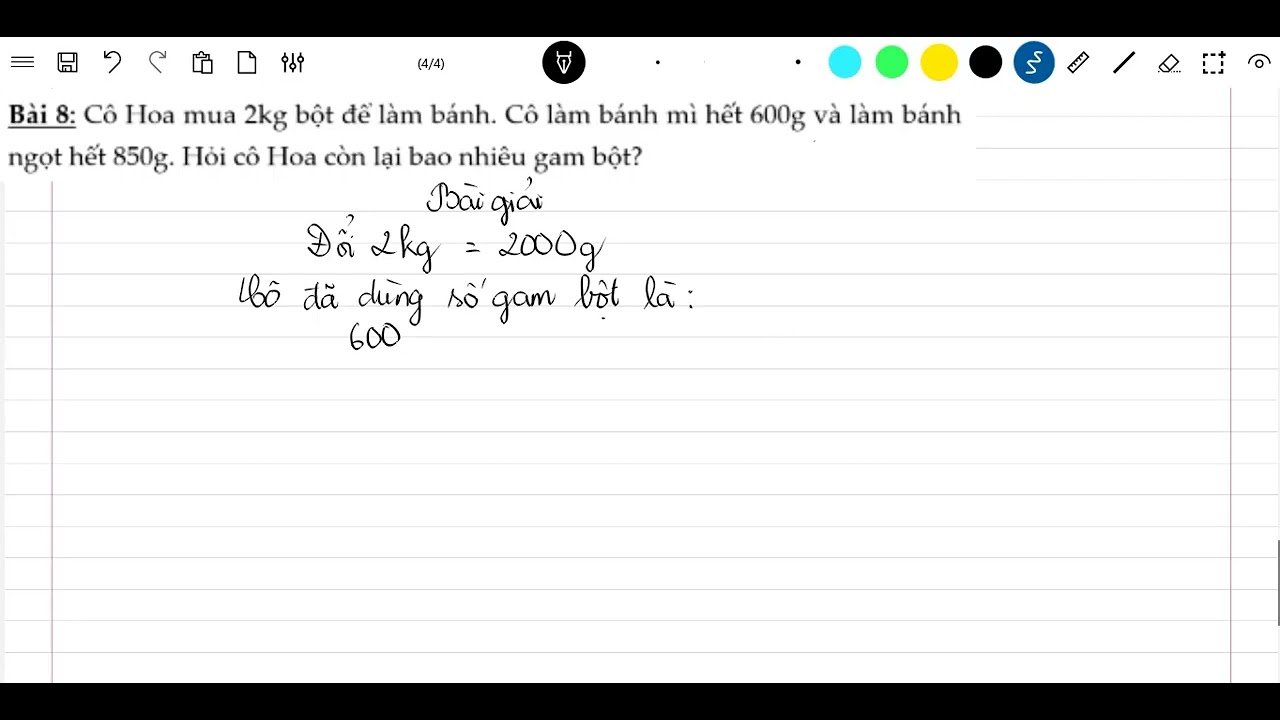 (4/4)
Bài 8: Cô Hoa mua 2kg bột để làm bánh. Cô làm bánh mì hết 600g và làm bánh
ngọt hết 850g. Hỏi cô Hoa còn lại bao nhiêu gam bột?
Bài giải
Đổi 2kg = 2000g
Cô đã dùng số gam bột là:
600